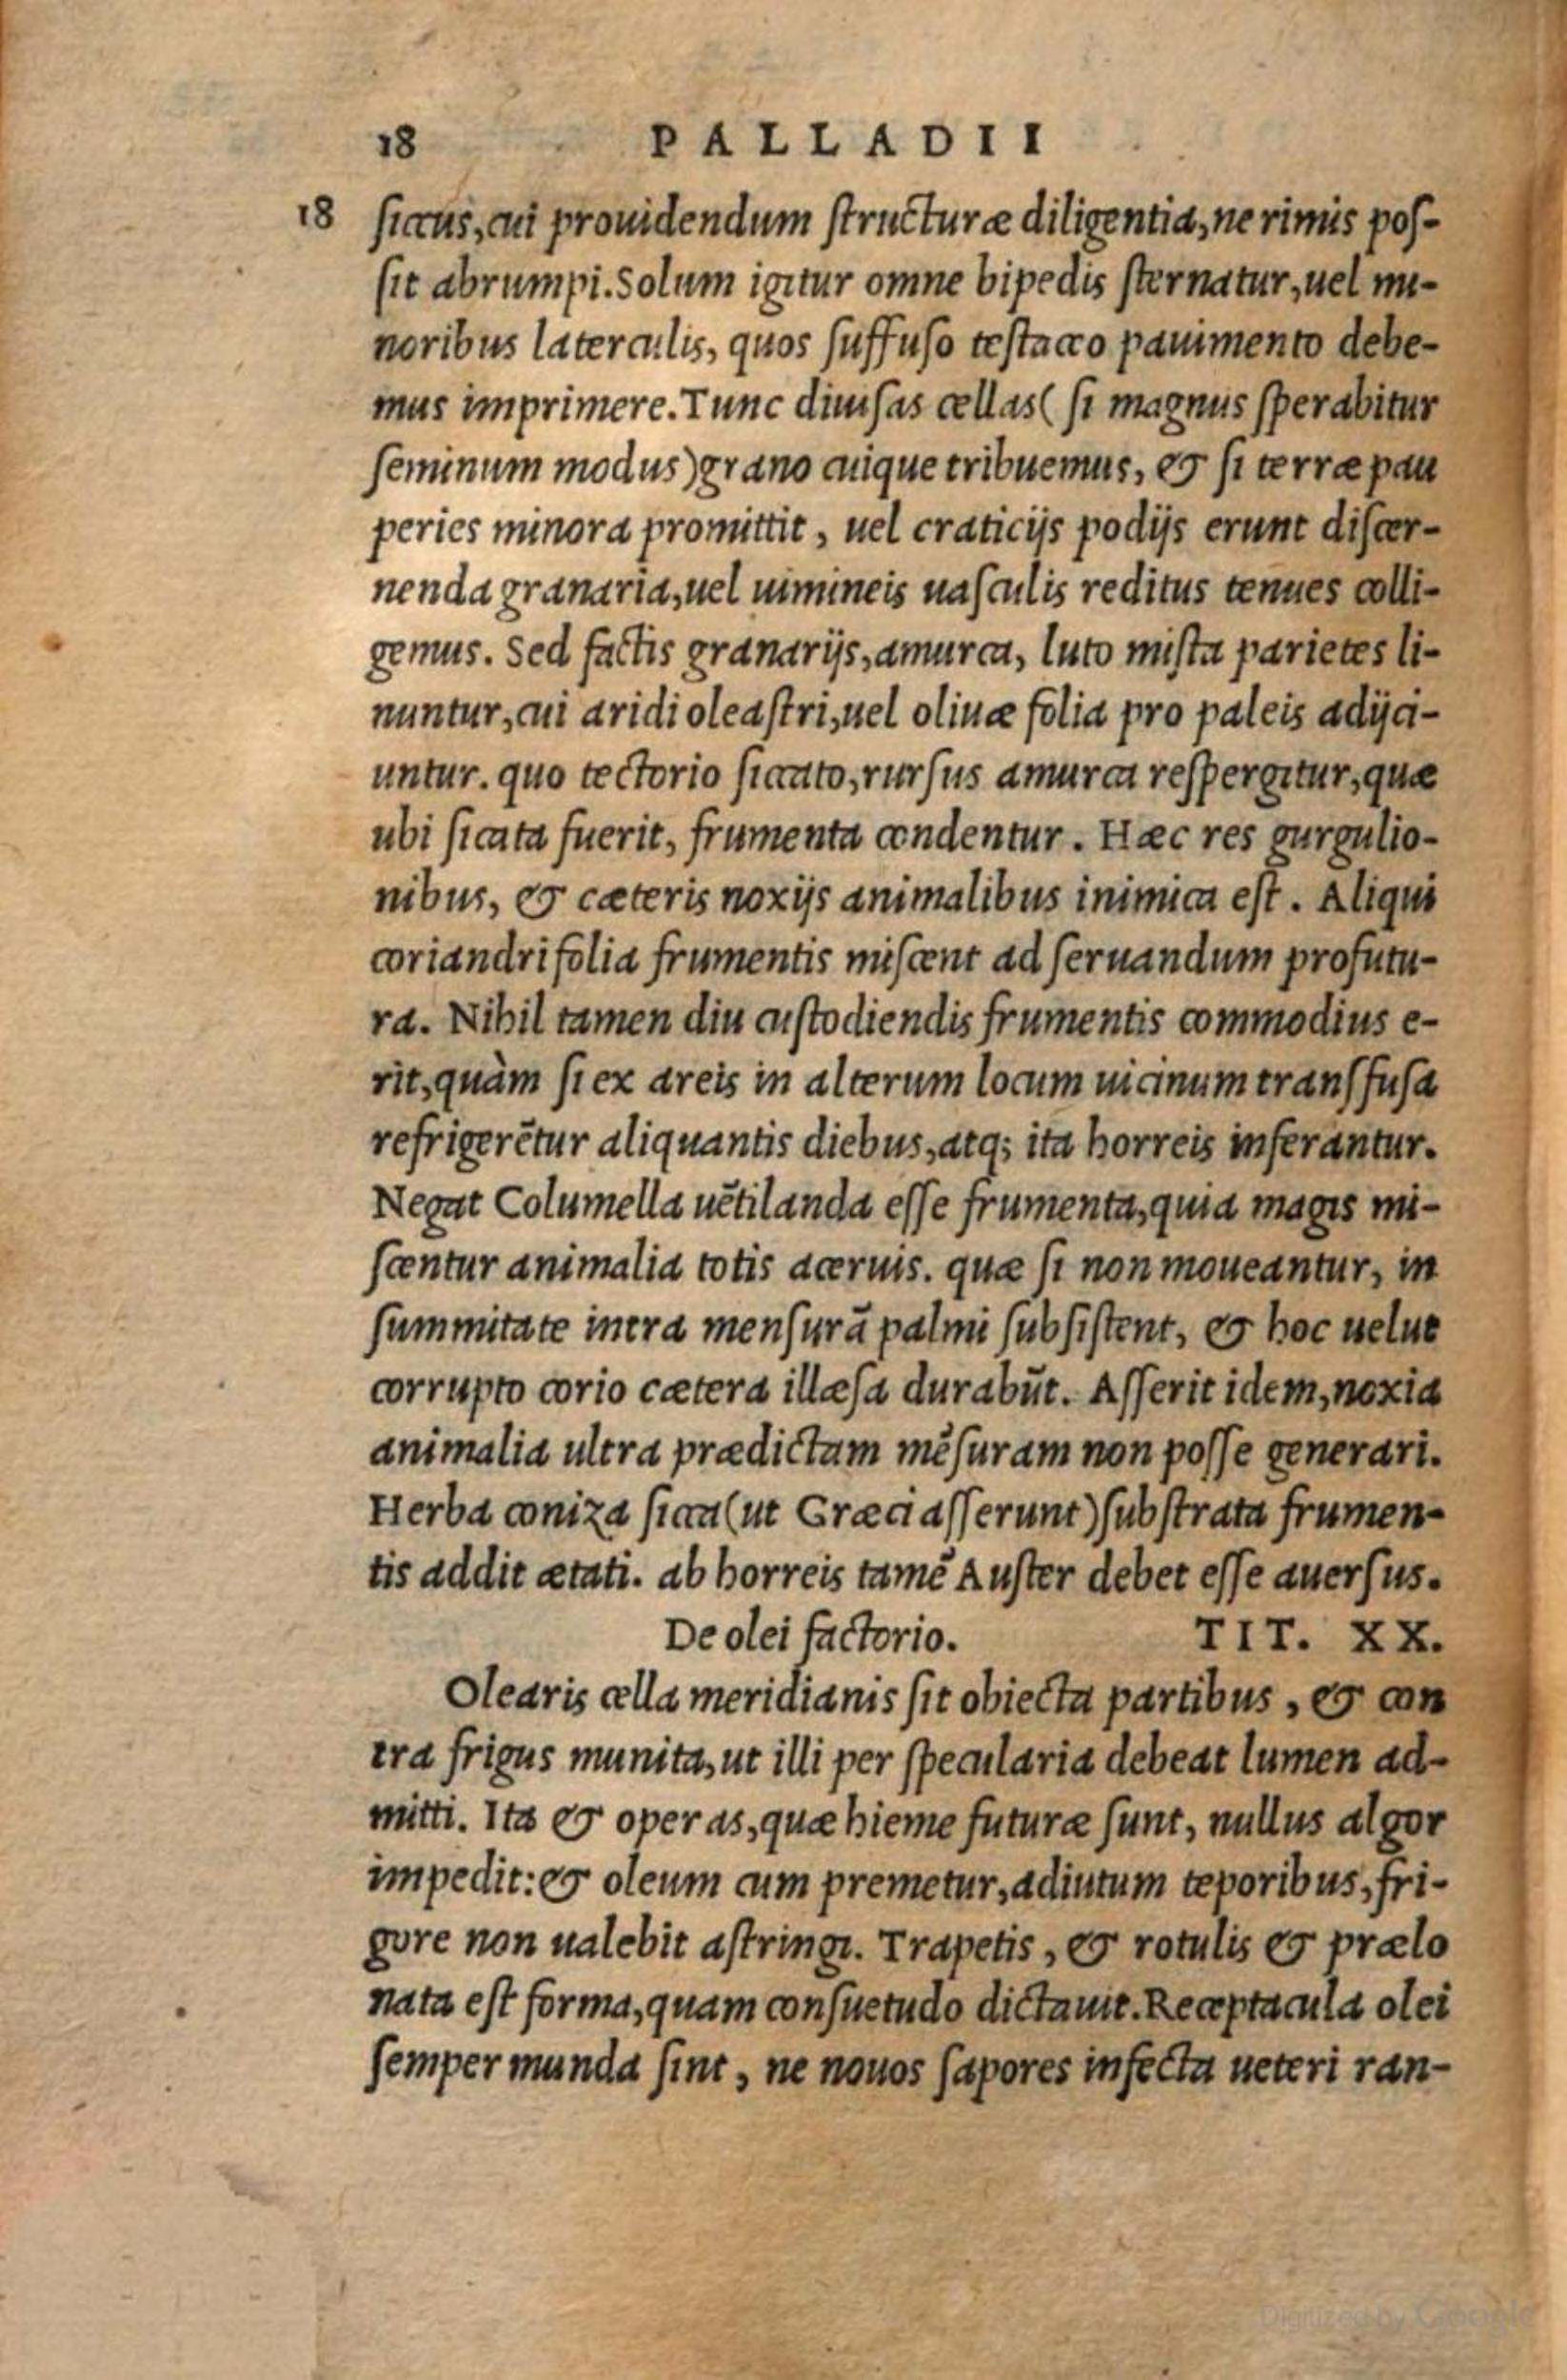 18 PALLADII
18 siccus, cui prouidendum structuræ diligentia, ne rimis pos-
sit abrumpi. Solum igitur omne bipedis sternatur, uel mi-
noribus laterculis, quos suffuso testaceo pauimento debe-
mus imprimere. Tunc diuisas cellas ( si magnus sperabitur
seminum modus) grano cuique tribuemus, & si terræ pau
peries minora promittit, uel craticijs podijs erunt discer-
nenda granaria, uel uimineis uasculis reditus tenues colli-
gemus. Sed factis granarijs, amurca, luto mista parietes li-
nuntur, cui aridi oleastri, uel oliuæ folia pro paleis adijci-
untur. quo tectorio siccato, rursus amurca respergitur, quæ
ubi sicata fuerit, frumenta condentur. Hæc res gurgulio-
nibus, & cæteris noxijs animalibus inimica est. Aliqui
coriandri folia frumentis miscent ad seruandum profutu-
ra. Nihil tamen diu custodiendis frumentis commodius e-
rit, quàm si ex areis in alterum locum uicinum transfusa
refrigerẽtur aliquantis diebus, atq; ita horreis inferantur.
Negat Columella uẽtilanda esse frumenta, quia magis mi-
scentur animalia totis aceruis. quæ si non moueantur, in
summitate intra mensurã palmi subsistent, & hoc uelut
corrupto corio cætera illæsa durabũt. Asserit idem, noxia
animalia ultra prædictam mẽsuram non posse generari.
Herba coniza sicca (ut Græci asserunt) substrata frumen-
tis addit ætati. ab horreis tamẽ Auster debet esse auersus.
De olei factorio. TIT. XX.
Olearis cella meridianis sit obiecta partibus, & con
tra frigus munita, ut illi per specularia debeat lumen ad-
mitti. Ita & operas, quæ hieme futuræ sunt, nullus algor
impedit: & oleum cum premetur, adiutum teporibus, fri-
gore non ualebit astringi. Trapetis, & rotulis & prælo
nata est forma, quam consuetudo dictauit. Receptacula olei
semper munda sint, ne nouos sapores infecta ueteri ran-
Digitized by Google